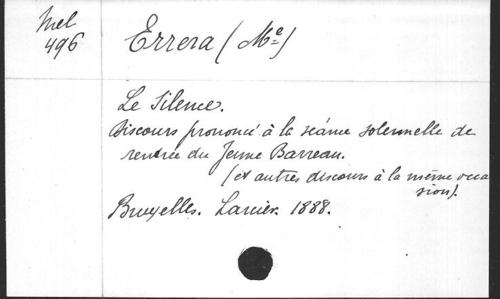 Mel
496
Errera (Me)
Le Silence.
Discours prononcé à la séance solennelle de
rentrée du Jeune Barreau.
(et autres discours à la même occa
sion).
Bruxelles. Larcier. 1888.